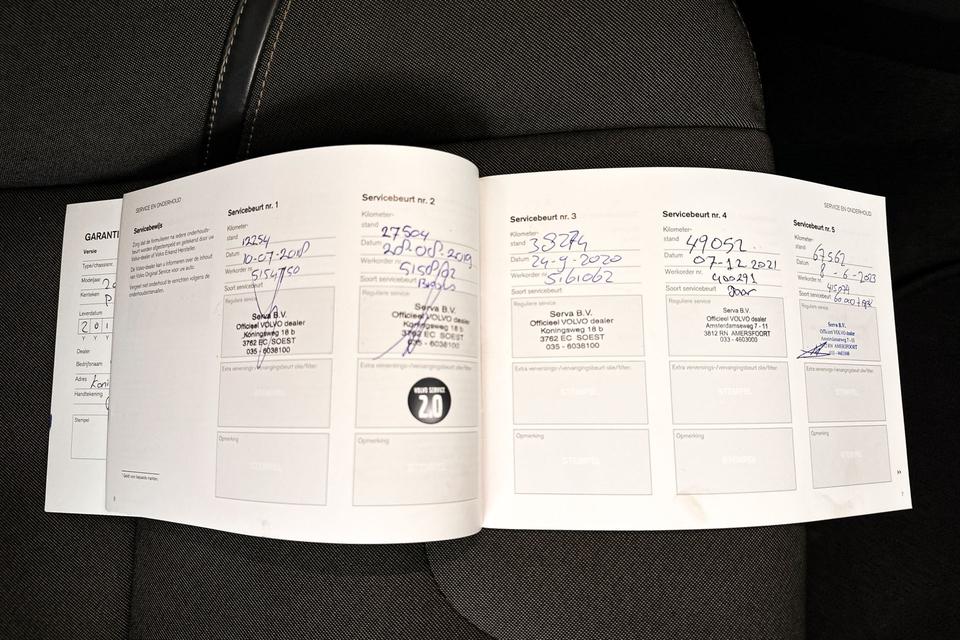 GARANTI
Versie
Type/chassisnr.
Modeljaar
Kenteken P
Leverdatum
2 0 1
Y Y Y
Dealer
Bedrijfsnaam
Adres Koni
Handtekening
Stempel
SERVICE EN ONDERHOUD
Servicebewijs
Zorg dat de formulieren na iedere onderhouds-
beurt worden afgestempeld en getekend door uw
Volvo-dealer of Volvo Erkend Hersteller.
De Volvo-dealer kan u informeren over de inhoud
van Volvo Original Service voor uw auto.
Vergeet niet onderhoud te verrichten volgens de
onderhoudsintervallen.
Servicebeurt nr. 1
Kilometer-
stand 12254
Datum 10-07-2018
Werkorder nr. 5154750
Soort servicebeurt
Reguliere service
Serva B.V.
Officieel VOLVO dealer
Koningsweg 18 b
3762 EC SOEST
035 - 6038100
Extra verversings-/vervangingsbeurt olie/filter.
STEMPEL
Opmerking
STEMPEL
Servicebeurt nr. 2
Kilometer-
stand 27504
Datum
Werkorder nr.
Soort servicebeurt
Reguliere service
Serva B.V.
Officieel VOLVO dealer
Koningsweg 18 b
3762 EC SOEST
035 - 6038100
Extra verversings-/vervangingsbeurt olie/filter.
VOLVO SERVICE
2.0
Opmerking
STEMPEL
Servicebeurt nr. 3
Kilometer-
stand 38274
Datum 24-9-2020
Werkorder nr. 5161062
Soort servicebeurt
Reguliere service
Serva B.V.
Officieel VOLVO dealer
Koningsweg 18 b
3762 EC SOEST
035 - 6038100
Extra verversings-/vervangingsbeurt olie/filter.
STEMPEL
Opmerking
STEMPEL
Servicebeurt nr. 4
Kilometer-
stand 49052
Datum 07-12-2021
Werkorder nr. 400291
Soort servicebeurt Jaar
Reguliere service
Serva B.V.
Officieel VOLVO dealer
Amsterdamseweg 7 - 11
3812 RN AMERSFOORT
033 - 4603000
Extra verversings-/vervangingsbeurt olie/filter.
STEMPEL
Opmerking
STEMPEL
SERVICE EN ONDERHOUD
Servicebeurt nr. 5
Kilometer-
stand 67562
Datum 8-6-2023
Werkorder nr.
Soort servicebeurt
Reguliere service
Serva B.V.
Officieel VOLVO dealer
Amsterdamseweg 7 - 11
RN AMERSFOORT
Extra verversings-/vervangingsbeurt olie/filter.
STEMPEL
Opmerking
STEMPEL
7